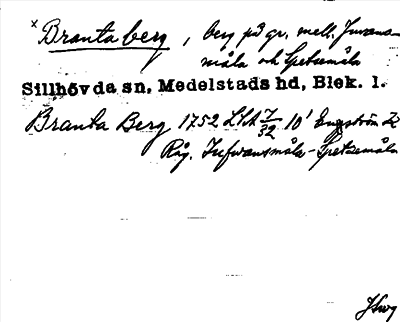 x Branta berg, berg på gr. mell. Juvans-
måla och Spetsemåla
Sillhövda sn, Medelstads hd, Blek. l.
Branta Berg 1752 LSA 7/32 10' Engström Z
Råg. Jufvansmåla-Spetsemåla